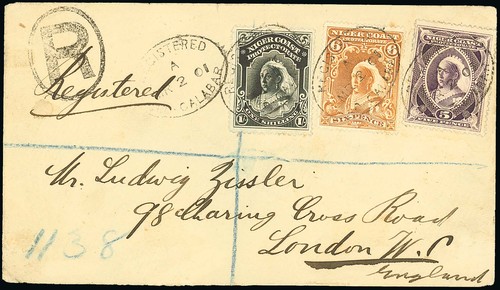 R
Registered
REGISTERED
A
2 01
CALABAR
NIGER COAST
PROTECTORATE
1/-
ONE SHILLING
1/-
NIGER COAST
PROTECTORATE
6
6
SIX PENCE
5
FIVE PENCE
Mr. Ludwig Zissler
98 Charing Cross Road
London W.C
England
1138